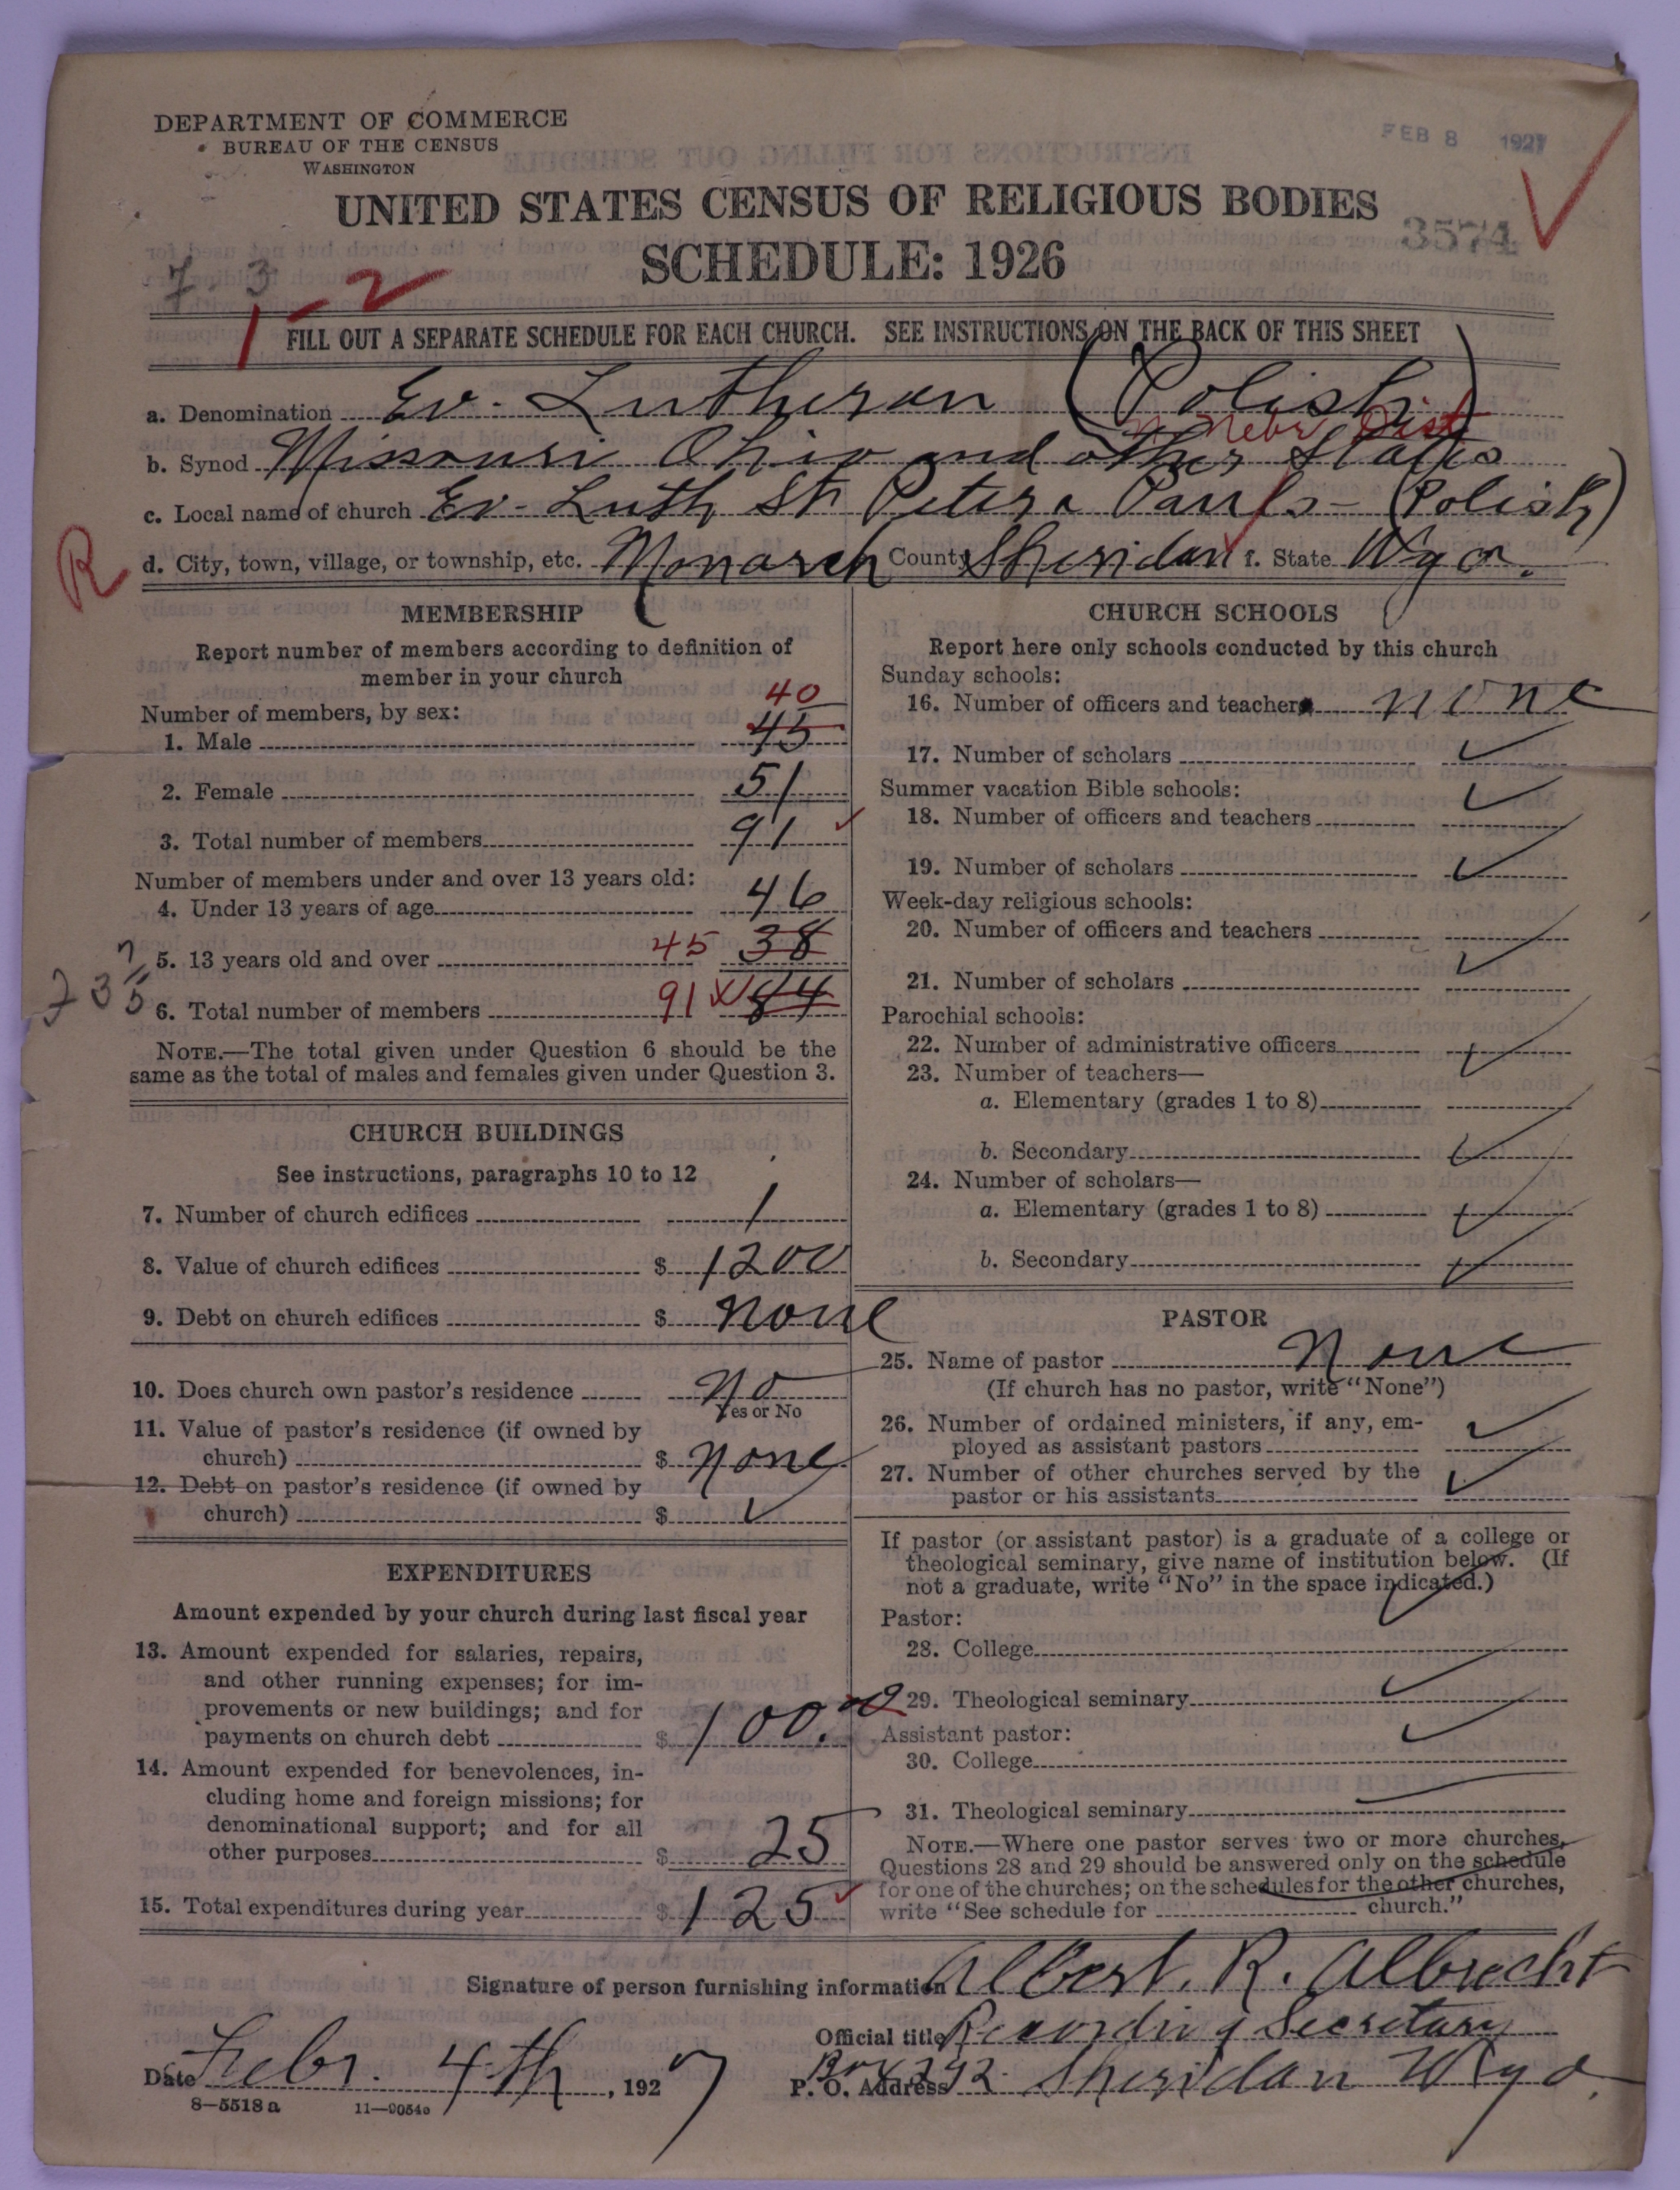 DEPARTMENT OF COMMERCE
BUREAU OF THE CENSUS
WASHINGTON
FEB 8 1927
UNITED STATES CENSUS OF RELIGIOUS BODIES
3574
SCHEDULE: 1926
7. 3
1-2
FILL OUT A SEPARATE SCHEDULE FOR EACH CHURCH. SEE INSTRUCTIONS ON THE BACK OF THIS SHEET
a. Denomination Ev. Lutheran (Polish)
Nebr Dist
b. Synod Missouri Ohio and other States
c. Local name of church Ev. Luth St Peter & Pauls - (Polish)
R
d. City, town, village, or township, etc. Monarch County Sheridan f. State Wyo.
MEMBERSHIP
Report number of members according to definition of
member in your church
40
Number of members, by sex:
1. Male 45
2. Female 51
3. Total number of members 91
Number of members under and over 13 years old:
4. Under 13 years of age 46
5. 13 years old and over 45 38
6. Total number of members 91 84
NOTE.—The total given under Question 6 should be the
same as the total of males and females given under Question 3.
CHURCH BUILDINGS
See instructions, paragraphs 10 to 12
7. Number of church edifices 1
8. Value of church edifices $ 1200
9. Debt on church edifices $ none
10. Does church own pastor's residence No
Yes or No
11. Value of pastor's residence (if owned by
church) $ none
12. Debt on pastor's residence (if owned by
church) $ ✓
EXPENDITURES
Amount expended by your church during last fiscal year
13. Amount expended for salaries, repairs,
and other running expenses; for im-
provements or new buildings; and for
payments on church debt $ 100.00
14. Amount expended for benevolences, in-
cluding home and foreign missions; for
denominational support; and for all
other purposes $ 25
15. Total expenditures during year $ 125
CHURCH SCHOOLS
Report here only schools conducted by this church
Sunday schools:
16. Number of officers and teachers none
17. Number of scholars ✓
Summer vacation Bible schools:
18. Number of officers and teachers ✓
19. Number of scholars ✓
Week-day religious schools:
20. Number of officers and teachers
21. Number of scholars ✓
Parochial schools:
22. Number of administrative officers ✓
23. Number of teachers—
a. Elementary (grades 1 to 8)
b. Secondary ✓
24. Number of scholars—
a. Elementary (grades 1 to 8) ✓
b. Secondary ✓
PASTOR
25. Name of pastor None
(If church has no pastor, write "None")
26. Number of ordained ministers, if any, em-
ployed as assistant pastors ✓
27. Number of other churches served by the
pastor or his assistants ✓
If pastor (or assistant pastor) is a graduate of a college or
theological seminary, give name of institution below. (If
not a graduate, write "No" in the space indicated.)
Pastor:
28. College ✓
29. Theological seminary ✓
Assistant pastor:
30. College ✓
31. Theological seminary
NOTE.—Where one pastor serves two or more churches,
Questions 28 and 29 should be answered only on the schedule
for one of the churches; on the schedules for the other churches,
write "See schedule for church."
Signature of person furnishing information Albert. R. Albrecht
Official title Recording Secretary
Date Febr. 4th, 1927
P. O. Address Box 292 Sheridan Wyo.
8—5518 a 11—9054a